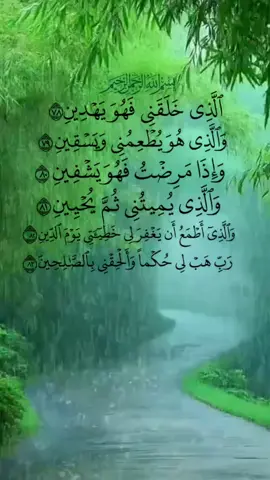 بسم الله الرحمن الرحيم
ٱلَّذِى خَلَقَنِى فَهُوَ يَهْدِينِ ٧٨
وَٱلَّذِى هُوَ يُطْعِمُنِى وَيَسْقِينِ ٧٩
وَإِذَا مَرِضْتُ فَهُوَ يَشْفِينِ ٨٠
وَٱلَّذِى يُمِيتُنِى ثُمَّ يُحْيِينِ ٨١
وَٱلَّذِىٓ أَطْمَعُ أَن يَغْفِرَ لِى خَطِيٓـَٔتِى يَوْمَ ٱلدِّينِ ٨٢
رَبِّ هَبْ لِى حُكْمًا وَأَلْحِقْنِى بِٱلصَّـٰلِحِينَ ٨٣